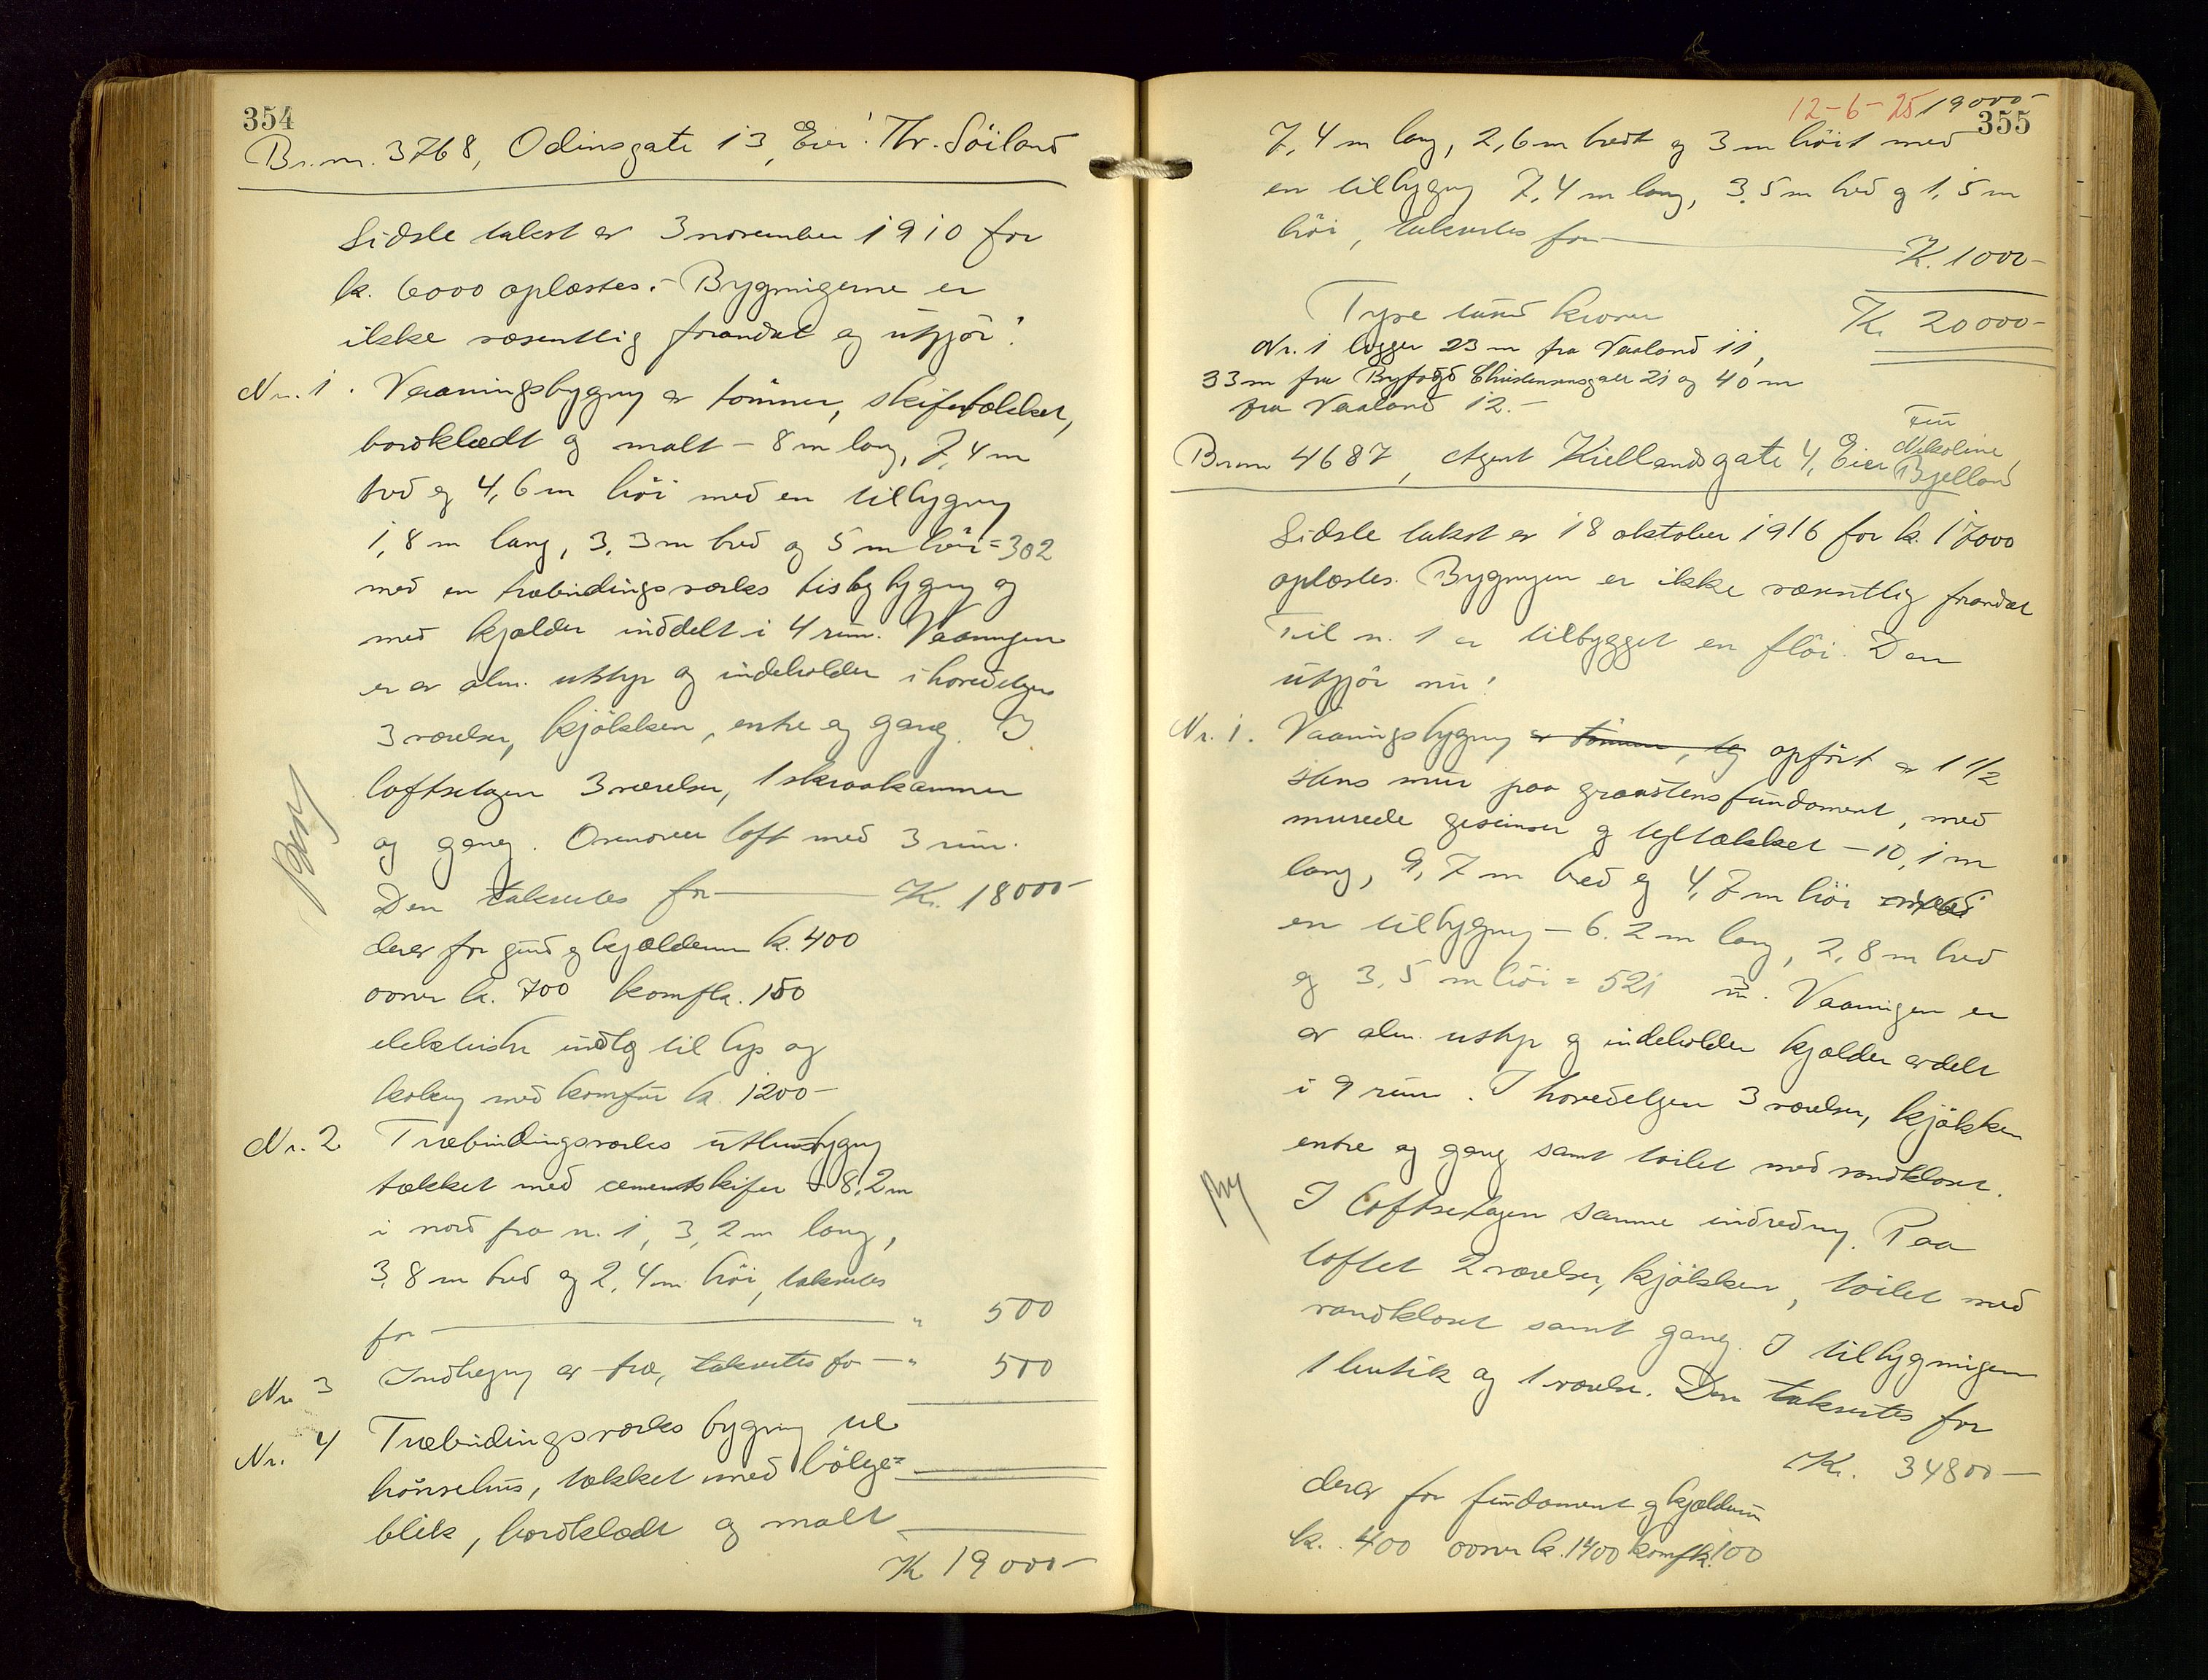 354
Br.nr. 3768, Odinsgate 13, Eier: Thr. Söiland
Sidste takst er 3 november 1910 for
k. 6000 oplæstes. - Bygningerne er
ikke væsentlig forandret og utgjör:
Nr. 1. Vaaningsbygning av tömmer, skifertækket,
bordklædt og malt - 8 m lang, 7,4 m
bred og 4,6 m höi med en tilbygning
1,8 m lang, 3,3 m bred og 5 m höi = 302
med en træbindingsverks bislagbygning og
med kjælder inddelt i 4 rum. Vaaningen
er av alm. utstyr og indeholder i hovedetagen
3 værelser, kjökken, entre og gang. I
loftsetagen 3 værelser, 1 skraakammer
og gang. Ovenover loft med 3 rum.
Den takseres for Kr. 18000-
derav for grund og kjælderrum k. 400
ovner k. 700 komf k. 150
elektriske indlæg til lys og
koking med komfur k. 1200-
Nr. 2 Træbindingsverks uthusbygning
tækket med cementskifer - 8,2 m
i nord fra nr. 1, 3,2 m lang,
3,8 m bred og 2,4 m höi, takseres
for " 500
Nr. 3 Indhegning av træ, takseres for - " 500
Nr. 4 Træbindingsverks bygning til
hönsehus, tækket med bölge=
blik, bordklædt og malt
Kr 19000-
12-6-25 19000-
355
7,4 m lang, 2,6 m bredt og 3 m höit med
en tilbygning 7,4 m lang, 3,5 m bred og 1,5 m
höi, takseres for K. 1000-
Tyve tusind kroner Kr. 20000-
Nr. 1 ligger 23 m fra Vaaland 11,
33 m fra Byfogd Christensensgate 21 og 40 m
fra Vaaland 12. -
Br.nr 4687, Agent Kiellandsgate 4, Eier Fru Nikoline Bjelland
Sidste takst er 18 oktober 1916 for k. 17000
oplæstes. Bygningen er ikke væsentlig forandret
Til nr. 1 er tilbygget en flöi. Den
utgjör nu:
Nr. 1. Vaaningsbygning av tömmer, teg opfört av 1 1/2
stens mur paa graastensfundament, med
murede gesimser og tegltækket - 10,1 m
lang, 9,7 m bred og 4,7 m höi med
en tilbygning - 6.2 m lang, 2,8 m bred
og 3,5 m höi = 521 m. Vaaningen er
av alm. utstyr og indeholder kjælder avdelt
i 9 rum. I hovedetagen 3 værelser, kjökken
entre og gang samt toilet med vandkloset.
I loftsetagen samme indredning. Paa
loftet 2 værelser, kjökken, toilet med
vandkloset samt gang. I tilbygningen
1 butik og 1 værelse. Den takseres for
Kr. 34800-
derav for fundament og kjælderrum
k. 400 ovner k. 1400 komf k. 100